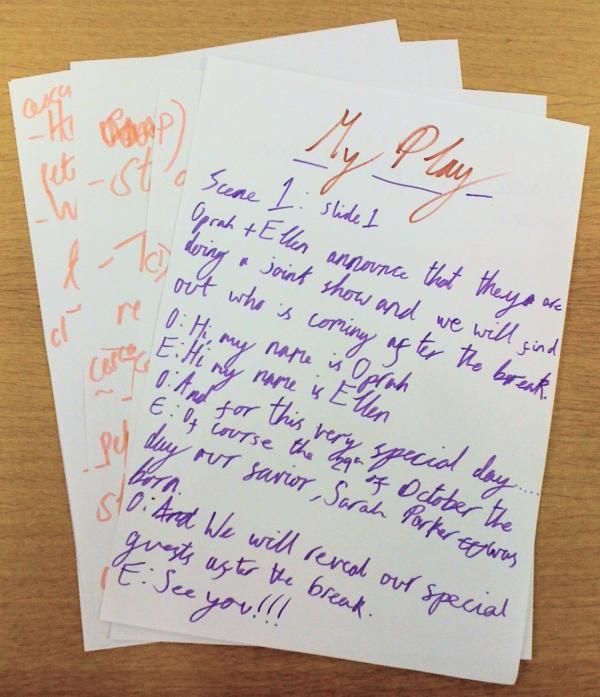 My Play
Scene 1: slide 1
Oprah + Ellen announce that they are
doing a joint show and we will find
out who is coming after the break.
O: Hi my name is Oprah
E: Hi my name is Ellen
O: And for this very special day.....
E: Of course the 29th of October the
day our savior, Sarah Parker was
born.
O: And We will reveal our special
guests after the break.
E: See you!!!
- Hi
pet
- W
- St
re
st